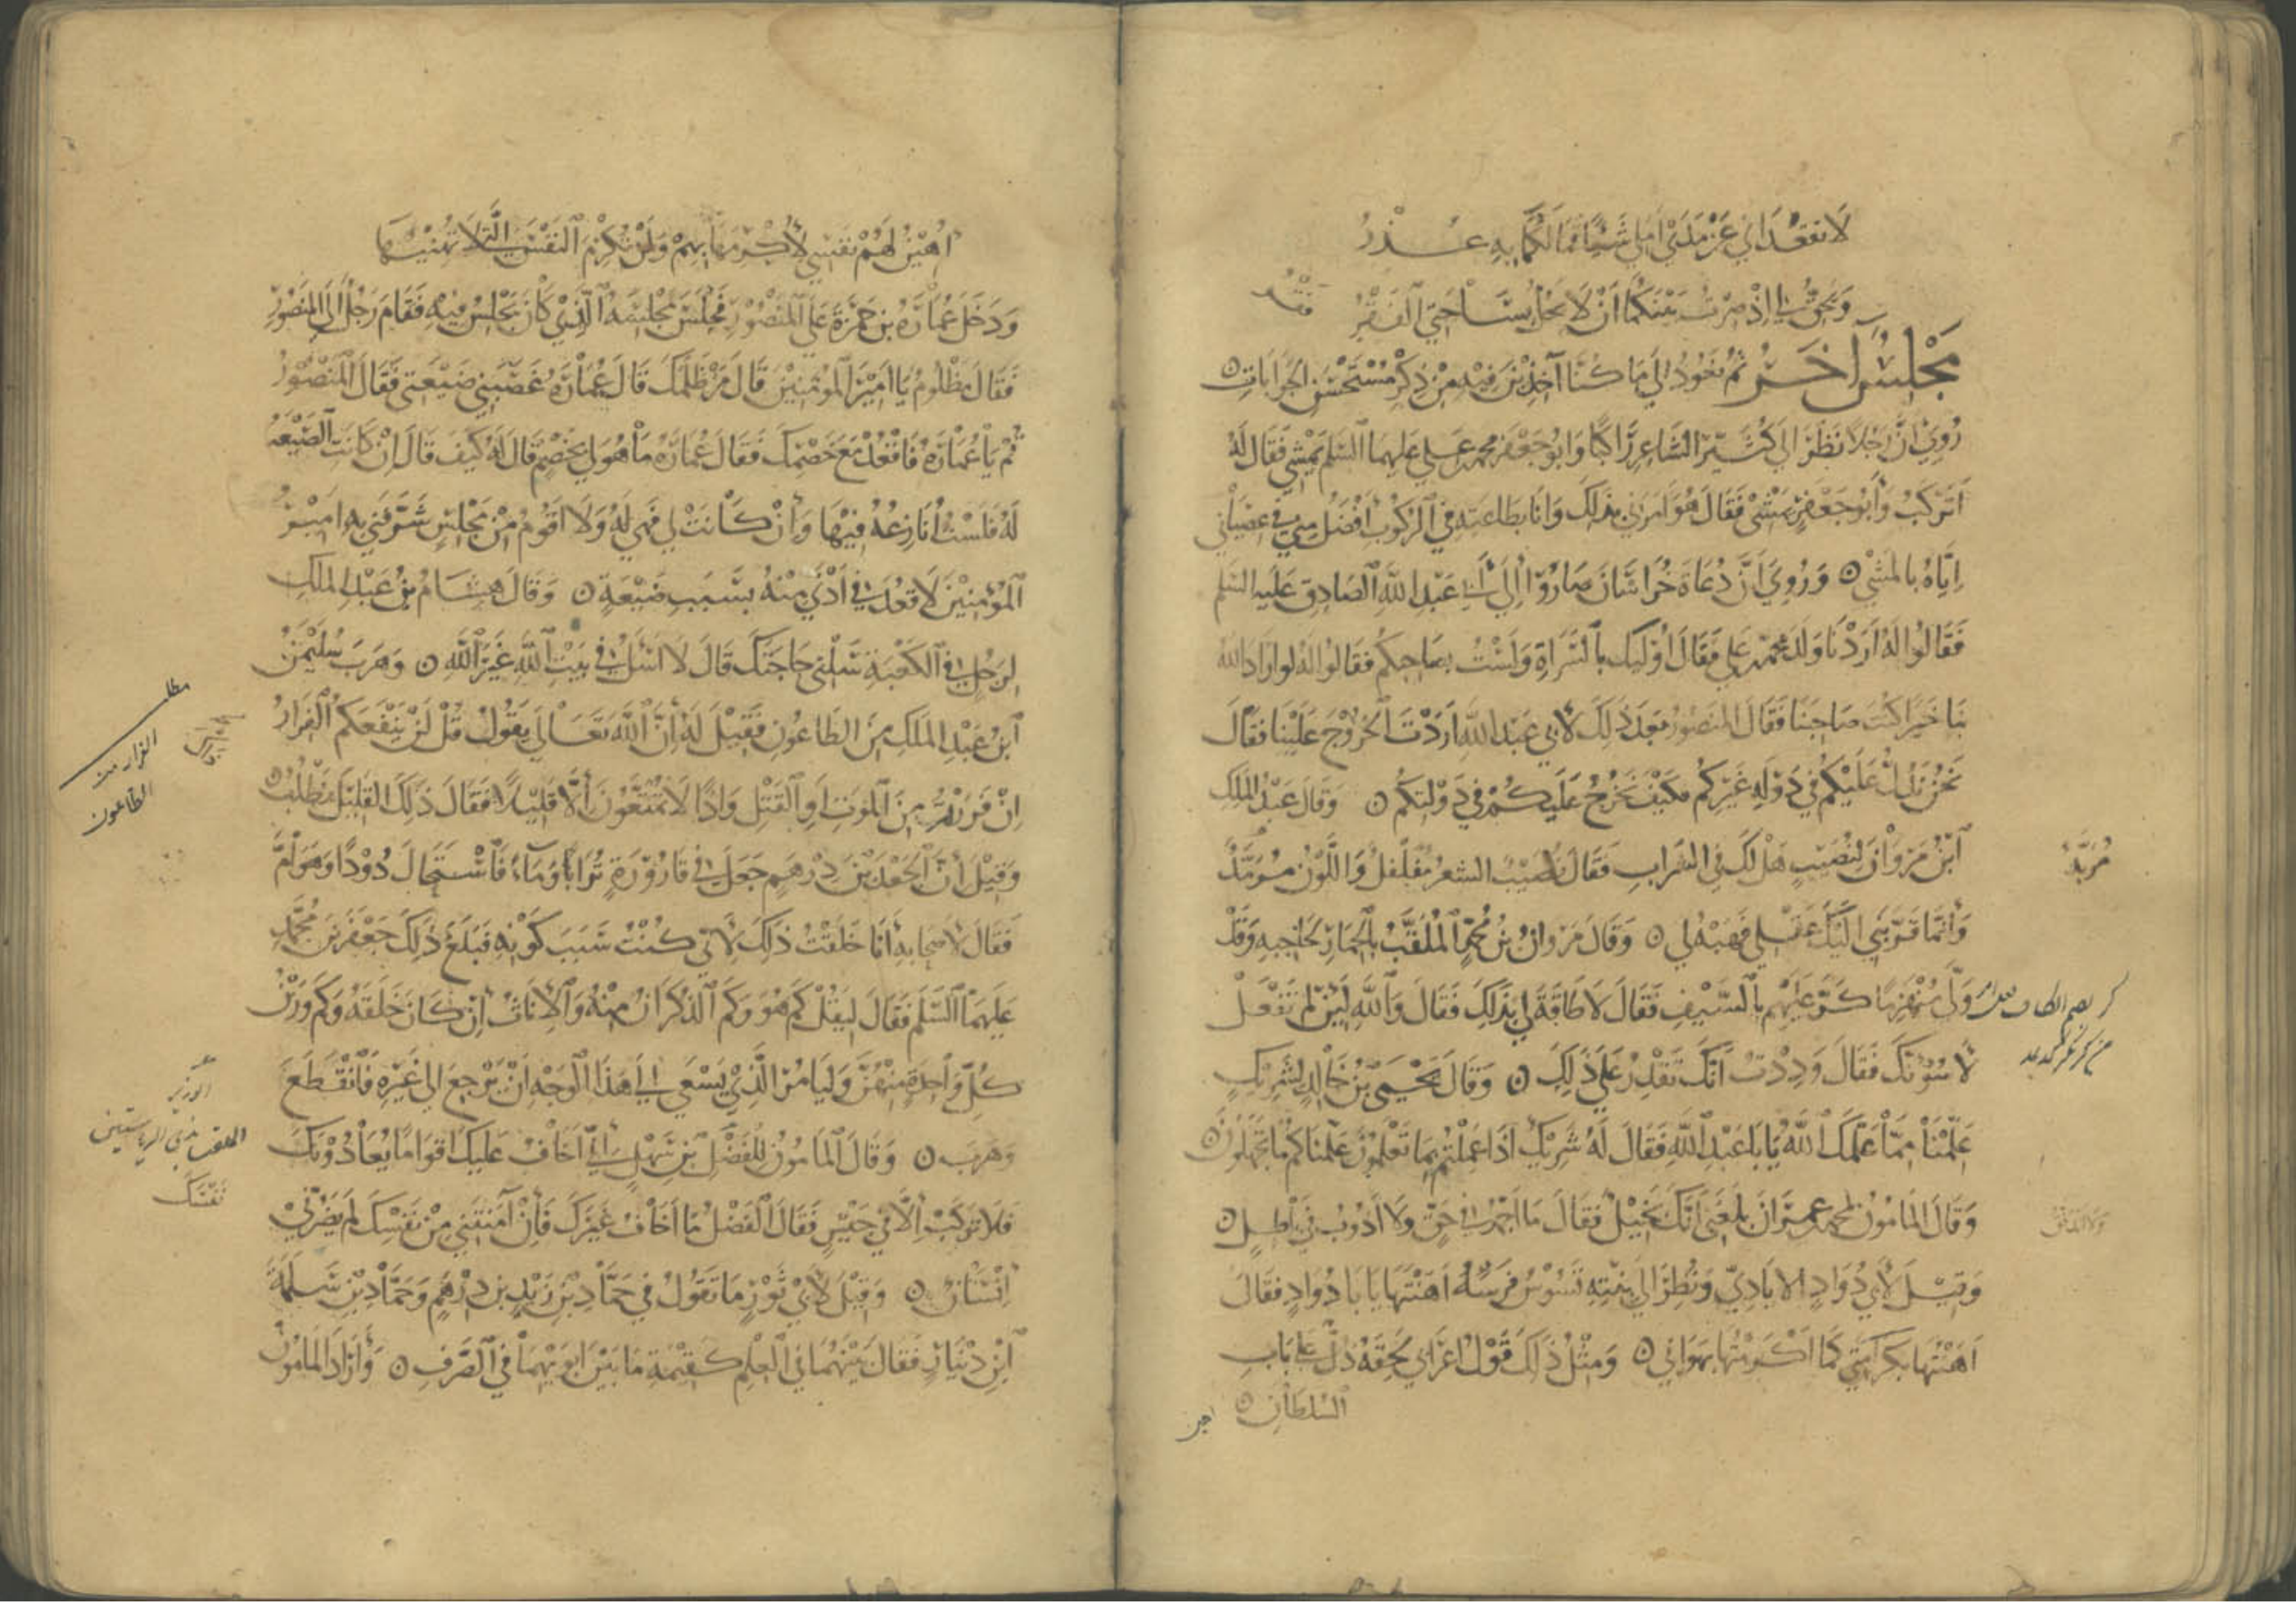 لَا تقعُدا بي عَنْ مَدَى أملي شَيْئًا فما لكما به عُذرُ
وَبحقّ لي إذ صرتُ بينكما أنْ لَا يحُلَّ بسَاحَتي الفَقْرُ
فَقْرُ
مَجْلِسٌ آخَرُ ثم نعُودُ إلى مَا كنّا آخِذِينَ فِيْهِ مِنْ ذِكْرِ مُسْتَحْسَنِ الجَوَابَاتِ
رُوِيَ أنَّ رَجُلًا نَظَرَ إلى كُثَيِّرٍ الشَّاعِرِ رَاكبًا وَابُو جَعْفَر محمّد بن علي عَليهمَا السَّلم يَمْشِي فَقَالَ لَهُ
أَتَرْكَبُ وَأَبُو جَعْفَرٍ يَمْشِي فَقَالَ هُوَ أمَرَني بذَلِكَ وَانَا بطَاعَتِهِ فِي الرّكُوبِ أفْضَلُ مِنّي في عِصْيَانِي
إيَّاهُ بالمَشْيِ ۝ وَرُوِيَ أنَّ دُعَاةَ خُرَاسَانَ صَارُوا إِلَى أبي عَبْدِ اللهِ الصَّادِقِ عَلَيهِ السَّلم
فَقَالُوا لَهُ أرَدْنَا وَلَدَ محمّد بن علي فَقَالَ أُولَئِكَ بالسَّرَاةِ وَلَسْتُ بصَاحِبِكُمْ فقَالوا لَهُ لو أرَادَ اللهُ
بنَا خَيْرًا كنتَ صَاحِبَنَا فَقَالَ المنصُورُ بَعْدَ ذَلِكَ لأبي عَبْدِ اللهِ أَرَدْتَ الخُرُوْجَ عَلَيْنَا فقَالَ
نَحْنُ نَدُلُّ عَلَيْكُمْ في دَوْلَةِ غَيْرِكُمْ فكَيْفَ نَخْرُجُ عَلَيكُمْ في دَوْلَتِكُمْ ۝ وَقَالَ عَبْدُ المَلِكِ
ابْنُ مَرْوَانَ لِنُصَيْبٍ هَلْ لَكَ في الشرابِ فَقَالَ نُصَيْبٌ الشعرُ مُفَلْفَلٌ وَاللَّوْنُ مُرَمَّدٌ
مُرَبَّدٌ
وَإنَّمَا قَرَّبَني إلَيْكَ عَقْلِي فَهَبْهُ لِي ۝ وَقَالَ مَرْوَانُ بْنُ مُحمَّدٍ المُلَقَّبُ بِالحِمَارِ لحَاجبِهِ وَقَدْ
وَلَّى مُنْهَزِمًا كُرَّ عَلَيْهِمْ بِالسَّيْفِ فَقَالَ لَا طَاقَةَ لِي بذَلِكَ فَقَالَ وَاللهِ لَئِنْ لَمْ تَفْعَلْ
لأسُوْءَنَّكَ فَقَالَ وَدِدْتُ أنَّكَ تَقْدِرُ عَلَى ذَلِكَ ۝ وَقَالَ يَحْيَى بْنُ خَالِدٍ لشَرِيْكٍ
عَلِّمْنَا مِمَّا عَلَّمَكَ اللهُ يَا بَا عَبْدِ اللهِ فَقَالَ لَهُ شَرِيْكٌ إذَا عَمِلْتُمْ بمَا تَعْلَمُونَ عَلَّمْنَاكُمْ مَا تَجْهَلُوْنَ ۝
وَقَالَ المَأمُونُ لمحمد بن عِمْرَانَ بَلَغَنِي أنَّكَ بَخِيْلٌ فَقَالَ مَا أَجْمُدُ في حَقٍّ وَلَا أَذُوْبُ في بَاطِلٍ ۝
وَقِيْلَ لأبي دُوَادٍ الايَادِيّ وَنُظِرَ إلَى بنتِهِ تَسُوْسُ فَرَسَهُ أهَنْتَهَا يَا بَا دُوَادٍ فقَالَ
أهَنْتُهَا بكَرَامَتي كَمَا أكْرَمْتُهَا بهَوَاني ۝ وَمِثْلُ ذَلِكَ قَوْلُ أعْرَابيّ لحِقَهُ ذُلٌّ عَلَى بَابِ
السُّلطَانِ ۝
اهين
أُهِيْنُ لَهُمْ نَفْسِي لأُكْرِمَهَا بِهِمْ وَلَنْ تُكْرَمَ النَّفْسُ الَّتي لَا تُهِيْنُهَا
وَدَخَلَ عُمَارَةُ بن حَمْزَةَ عَلَى المَنْصُوْرِ فَجَلَسَ مَجْلِسَهُ الَّذِي كَانَ يَجْلِسُ فِيْهِ فَقَامَ رَجُلٌ إلَى المَنصُورِ
فَقَالَ مَظْلُومٌ يَا أمِيْرَ المُوْمِنِيْنَ قَالَ مَنْ ظَلَمَكَ قَالَ عُمَارَةُ غَصَبَنِي ضَيْعَتي فَقَالَ المَنْصُوْرُ
قُمْ يَا عُمَارَةُ فَاقْعُدْ مَعَ خَصْمِكَ فَقَالَ عُمَارَةُ مَا هُوَ لي بخَصْمٍ قَالَ لَهُ كَيْفَ قَالَ إنْ كَانَتِ الضَّيْعَةُ
لَهُ فَلَسْتُ أُنَازِعُهُ فِيْهَا وَإنْ كَانَتْ لِي فَهِيَ لَهُ وَلَا أَقُومُ مِنْ مَجْلِسٍ شَرَّفَنِي بِهِ أمِيْرُ
المُؤْمِنِيْنَ لأقعُدَ في أَدْنَى مِنْهُ بِسَبَبِ ضَيْعَةٍ ۝ وَقَالَ هِشَامُ بْنُ عَبْدِ المَلِكِ
لِرَجُلٍ في الكَعْبَةِ سَلْنِي حَاجَتَكَ قَالَ لَا أسْأَلُ في بَيْتِ اللهِ غَيْرَ اللهِ ۝ وَهَرَبَ سُلَيْمَنُ
مطلب
الفرار من
الطاعون
ابْنُ عَبْدِ المَلِكِ مِنَ الطَّاعُونِ فَقِيْلَ لَهُ إنَّ اللهَ تَعَالَى يَقُولُ قُلْ لَنْ يَنْفَعَكُمُ الفِرَارُ
إنْ فَرَرْتُمْ مِنَ المَوْتِ أَوِ القَتْلِ وَإذًا لَا تُمَتَّعُوْنَ إلَّا قَلِيْلًا فَقَالَ ذَلِكَ القَلِيْلَ نَطْلُبُ ۝
وَقِيْلَ إنَّ الجَعْدَ بْنَ دِرْهَمٍ جَعَلَ في قَارُوْرَةٍ تُرَابًا وَمَاءً فَاسْتَحَالَ دُوْدًا وَهَوَامَّ
فَقَالَ لأَصْحَابِهِ أنَا خَلَقْتُ ذَلِكَ لأَنِّي كُنْتُ سَبَبَ كَوْنِهِ فَبَلَغَ ذَلِكَ جَعْفَرَ بْنَ مُحَمَّدٍ
عَلَيْهِمَا السَّلَم فَقَالَ لِيَقُلْ كَمْ هُوَ وَكَمِ الذُّكْرَانُ مِنْهُ وَالإِنَاثُ إنْ كَانَ خَلَقَهُ وَكَمْ وَزْنُ
كُلِّ وَاحِدَةٍ مِنْهُنَّ وَلْيَأمُرِ الَّذِيْ يَسْعَى إلَى هَذَا الوَجْهِ أنْ يَرْجِعَ إلى غَيْرِهِ فَانْقَطَعَ
الوزير
الملقب بذي الرياستين
وَهَرَبَ ۝ وَقَالَ المَأمُونُ لِلْفَضْلِ بْنِ سَهْلٍ إنِّي أَخَافُ عَلَيْكَ أقوَامًا يُعَادُوْنَكَ
نَفْسَكَ
فَلَا تَرْكَبْ إلَّا في جَيْشٍ فَقَالَ الفَضْلُ مَا أَخَافُ غَيْرَكَ فَإنْ آمَنْتَنِي مِنْ نَفْسِكَ لَمْ يَضُرَّنِي
إنْسَانٌ ۝ وَقِيْلَ لأَبِي ثَوْرٍ مَا تَقُولُ في حَمَّادِ بْنِ زَيْدِ بنِ دِرْهَمٍ وَحَمَّادِ بْنِ سَلَمَةَ
ابْنِ دِيْنَارٍ فَقَالَ بَيْنَهُمَا في العِلْمِ كَقِيْمَةِ مَا بَيْنَ أبَوَيْهِمَا في الصَّرْفِ ۝ وَأَرَادَ المَامُوْنُ